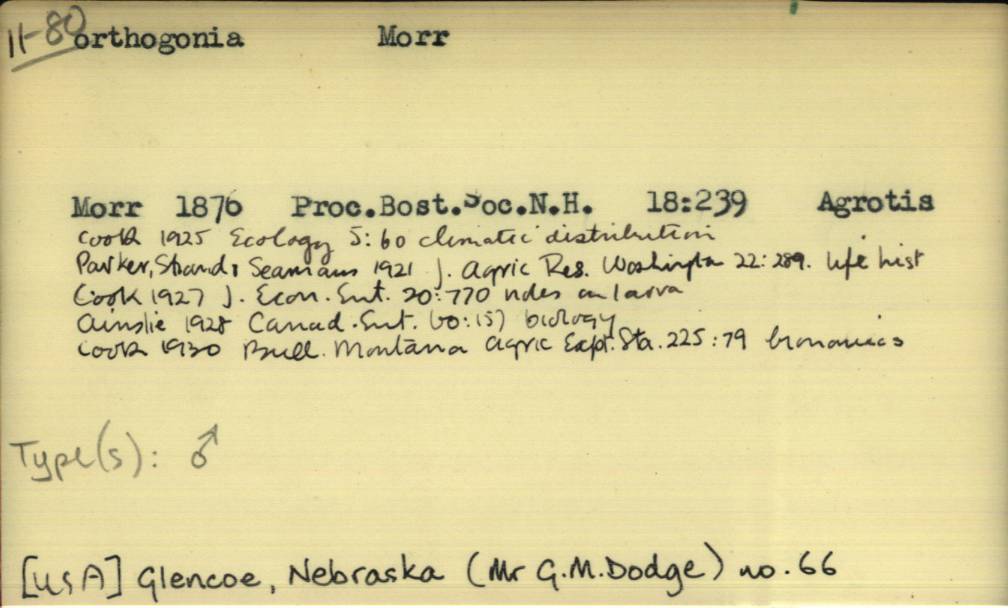 11-80 orthogonia Morr
Morr 1876 Proc.Bost.Soc.N.H. 18:239 Agrotis
Cook 1925 Ecology 5:60 climatic distribution
Parker, Strand, Seamans 1921 J. Agric Res. Washington 22:289. life hist
Cook 1927 J. Econ. Ent. 20:770 notes on larva
Ainslie 1928 Canad. Ent. 60:157 biology
Cook 1930 Bull. Montana Agric Expt. Sta. 225:79 bionomics
Type(s): ♂
[USA] Glencoe, Nebraska (Mr G.M.Dodge) no. 66